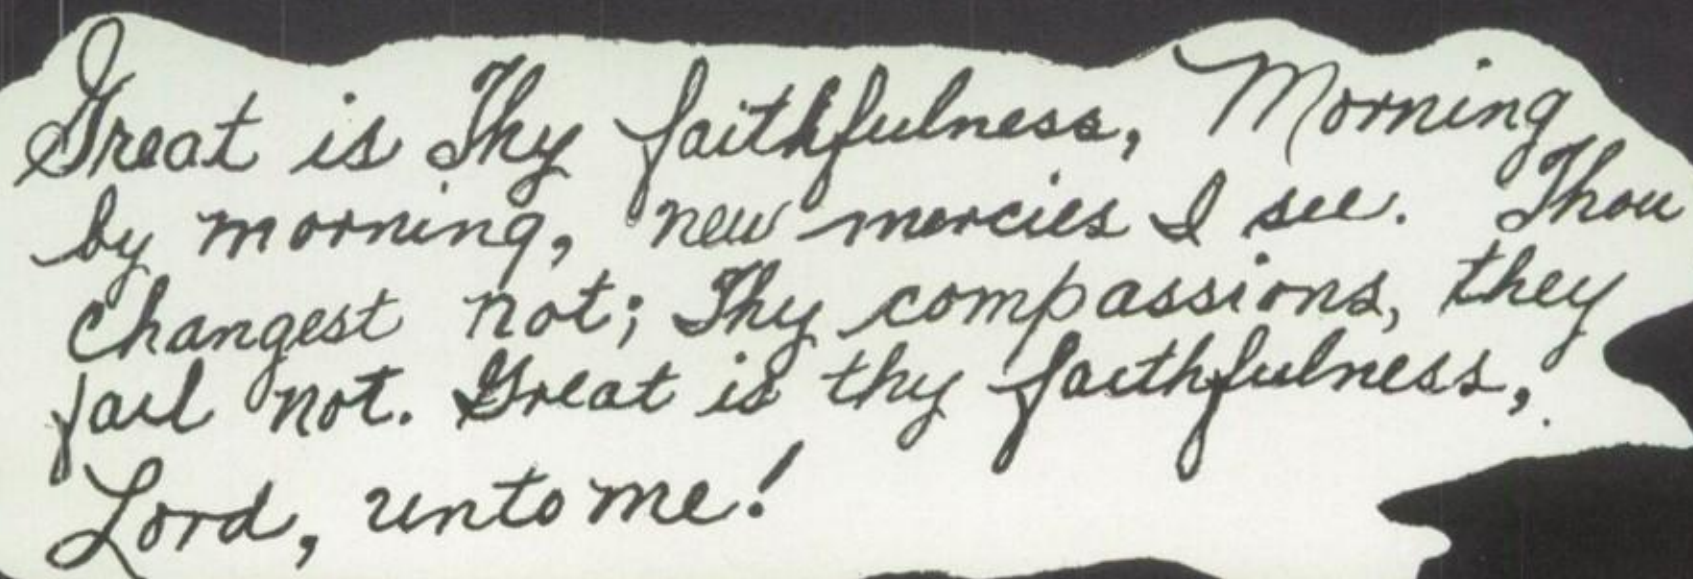 Great is Thy faithfulness, Morning
by morning, new mercies I see. Thou
changest not; Thy compassions, they
fail not. Great is thy faithfulness,
Lord, unto me!